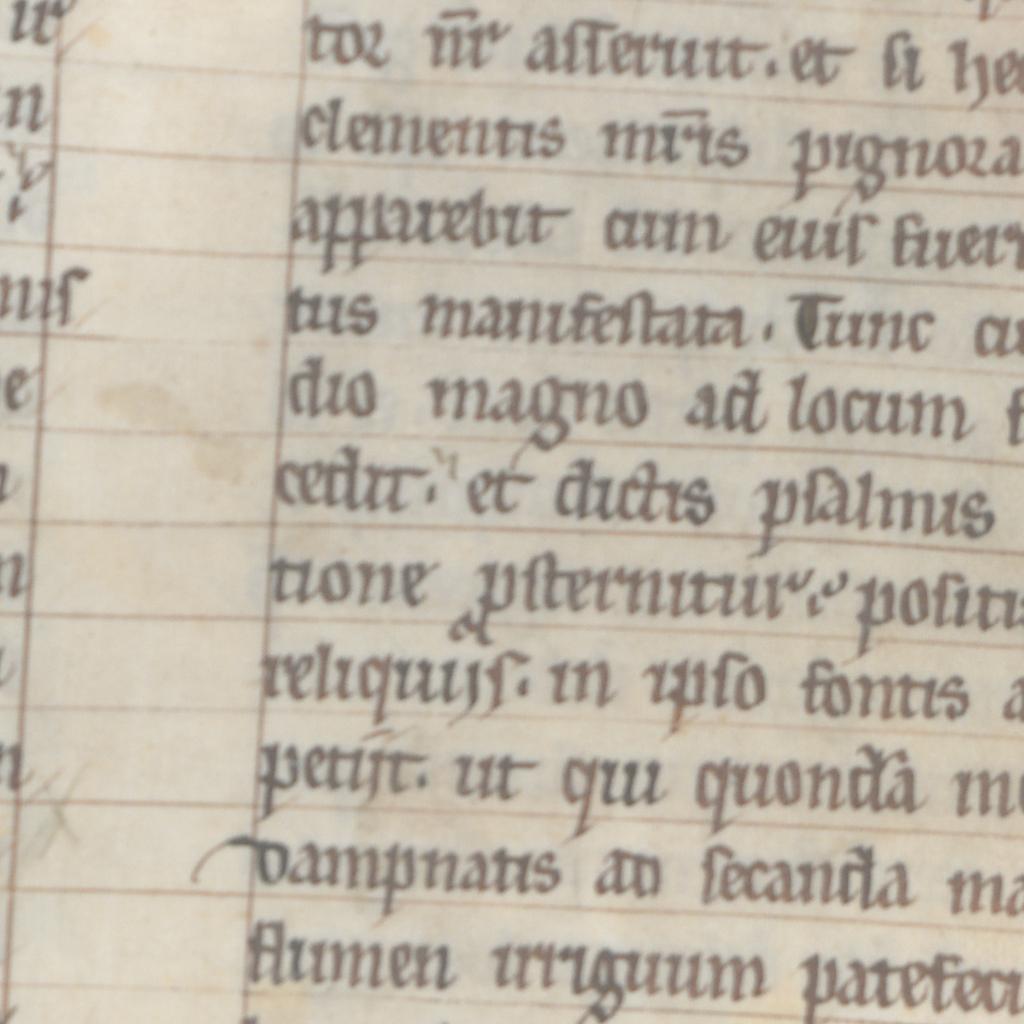 tor nr̄ asseruit. et si hec
clementis mr̄is pignora
apparebit cum euis fuer
tus manifestata. Tunc cu
dio magno ad locum f
cedit. et dictis psalmis
tione psternitur. positi
reliquijs. in ipso fontis a
petijt. ut qui quondā
dampnatis ad secanda ma
flumen irriguum patefeci